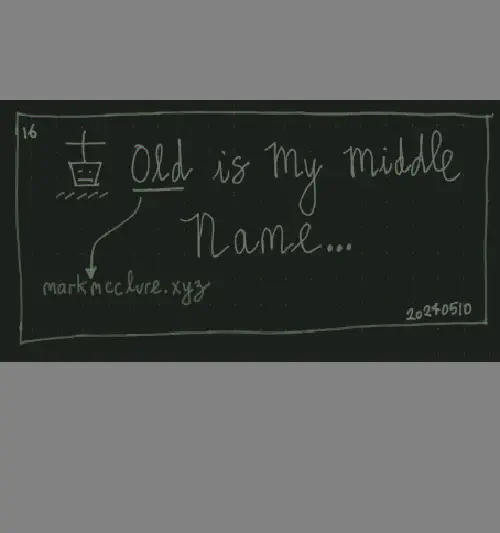 16
Old is My middle
Name...
markmcclure.xyz
20240510